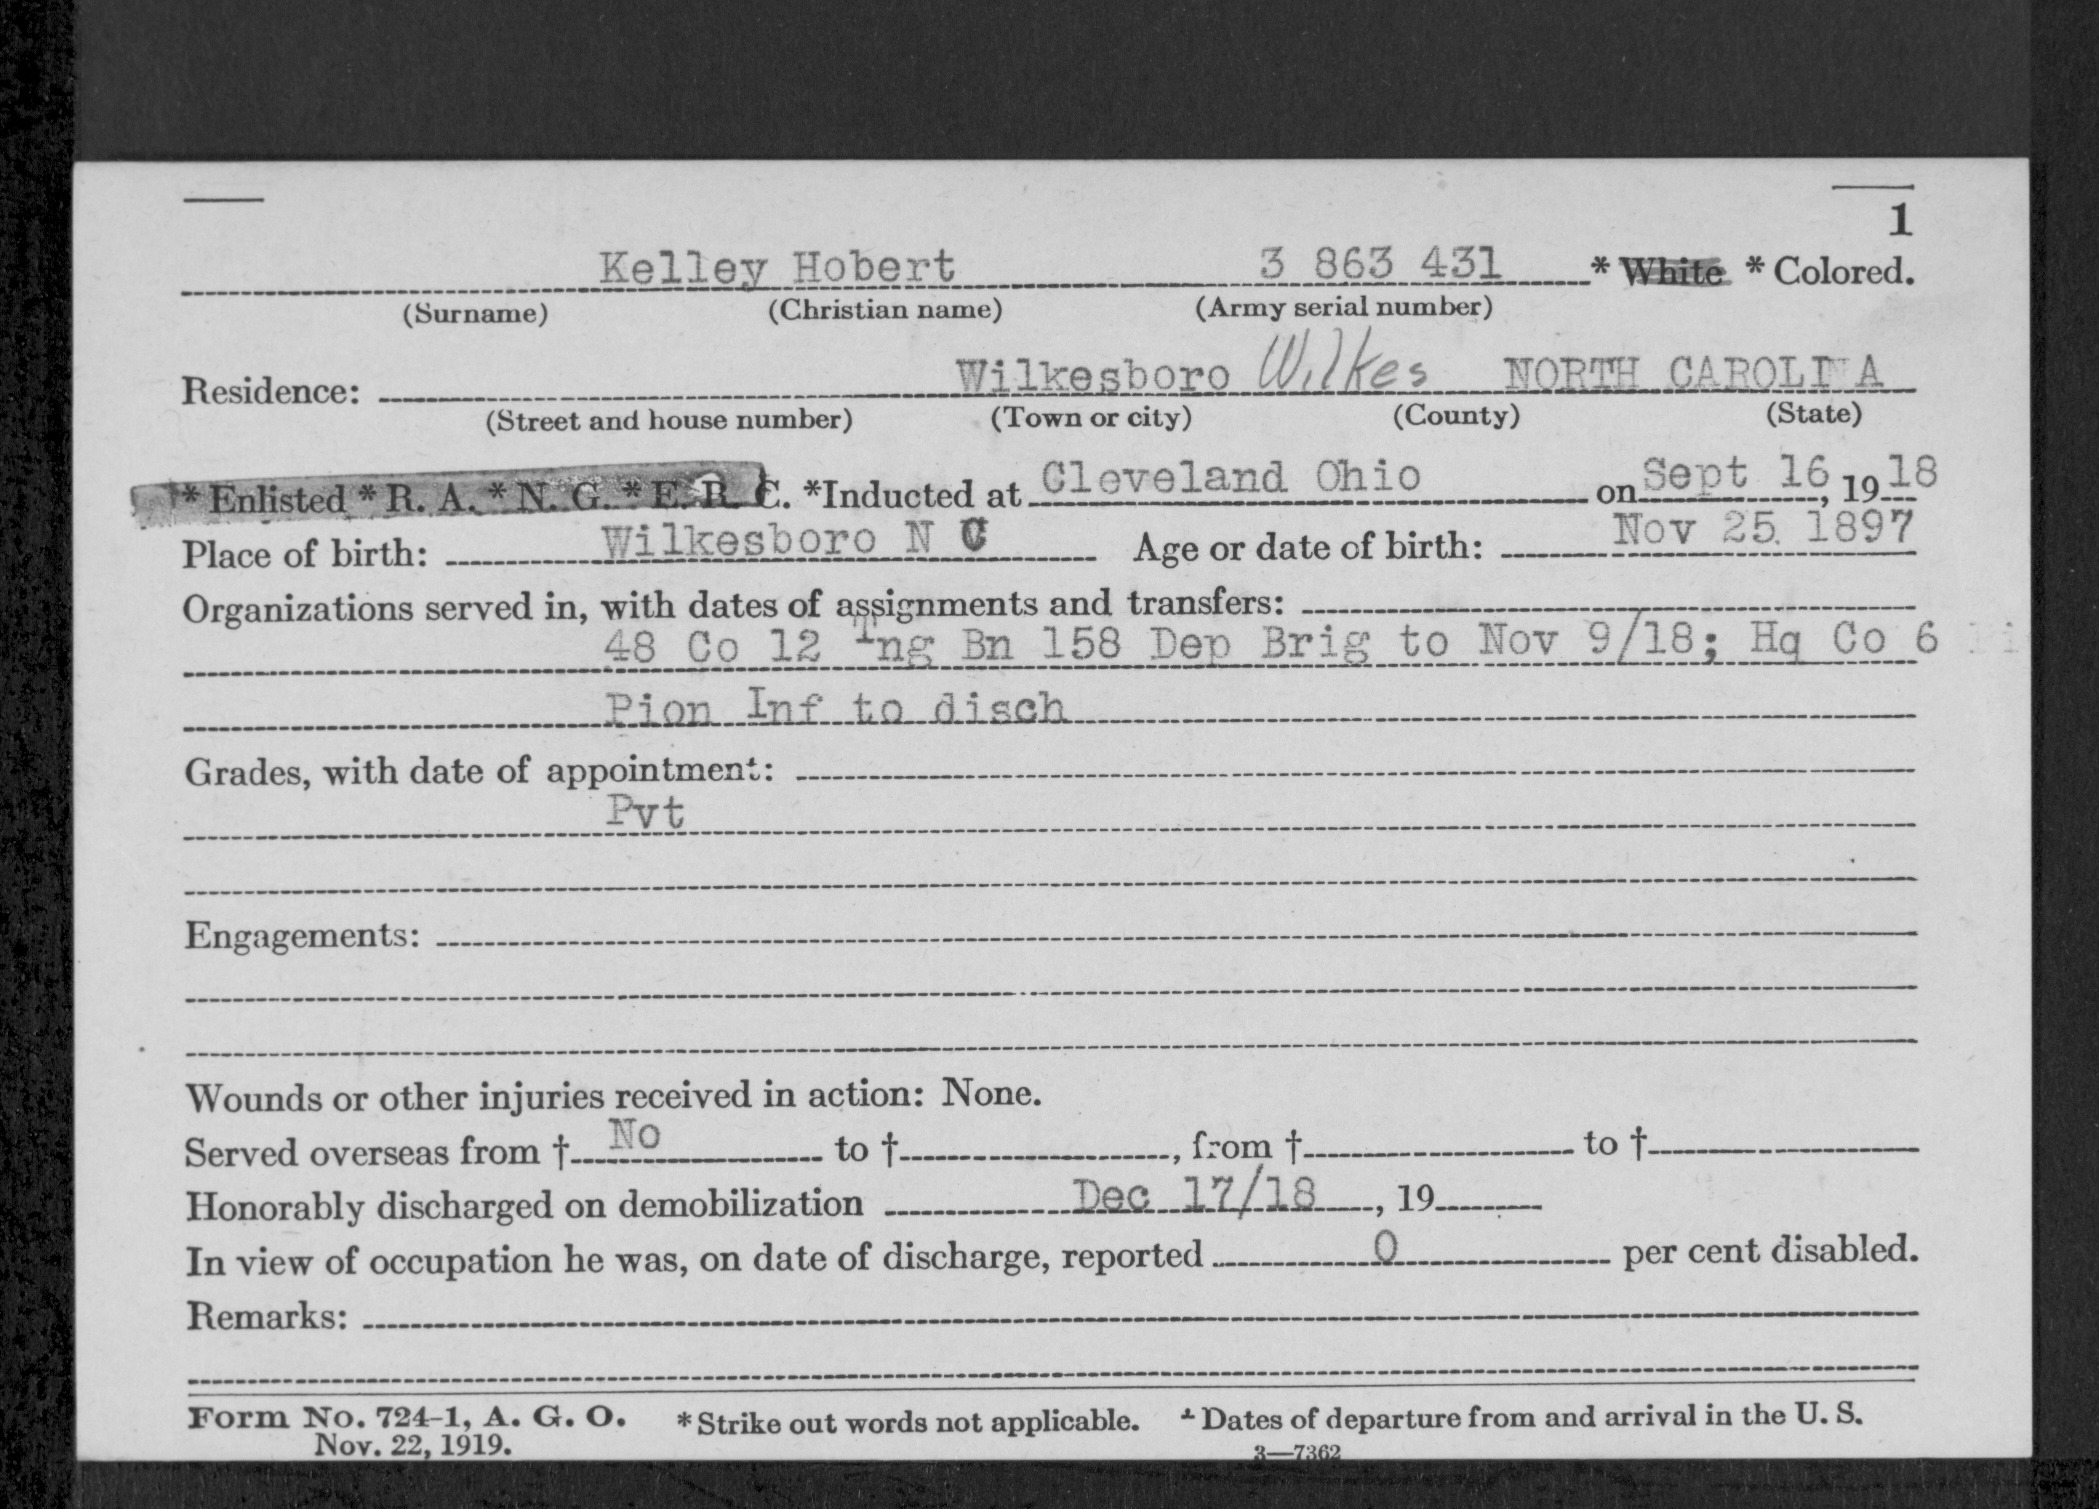 1
Kelley Hobert 3 863 431 * White * Colored.
(Surname) (Christian name) (Army serial number)
Residence: Wilkesboro Wilkes NORTH CAROLINA
(Street and house number) (Town or city) (County) (State)
* Enlisted * R. A. * N. G. * E. R. C. *Inducted at Cleveland Ohio on Sept 16, 1918
Place of birth: Wilkesboro N C Age or date of birth: Nov 25 1897
Organizations served in, with dates of assignments and transfers:
48 Co 12 Tng Bn 158 Dep Brig to Nov 9/18; Hq Co 6
Pion Inf to disch
Grades, with date of appointment:
Pvt
Engagements:
Wounds or other injuries received in action: None.
Served overseas from † No to †, from † to †
Honorably discharged on demobilization Dec 17/18, 19
In view of occupation he was, on date of discharge, reported 0 per cent disabled.
Remarks:
Form No. 724-1, A. G. O. * Strike out words not applicable. † Dates of departure from and arrival in the U. S.
Nov. 22, 1919. 3—7362